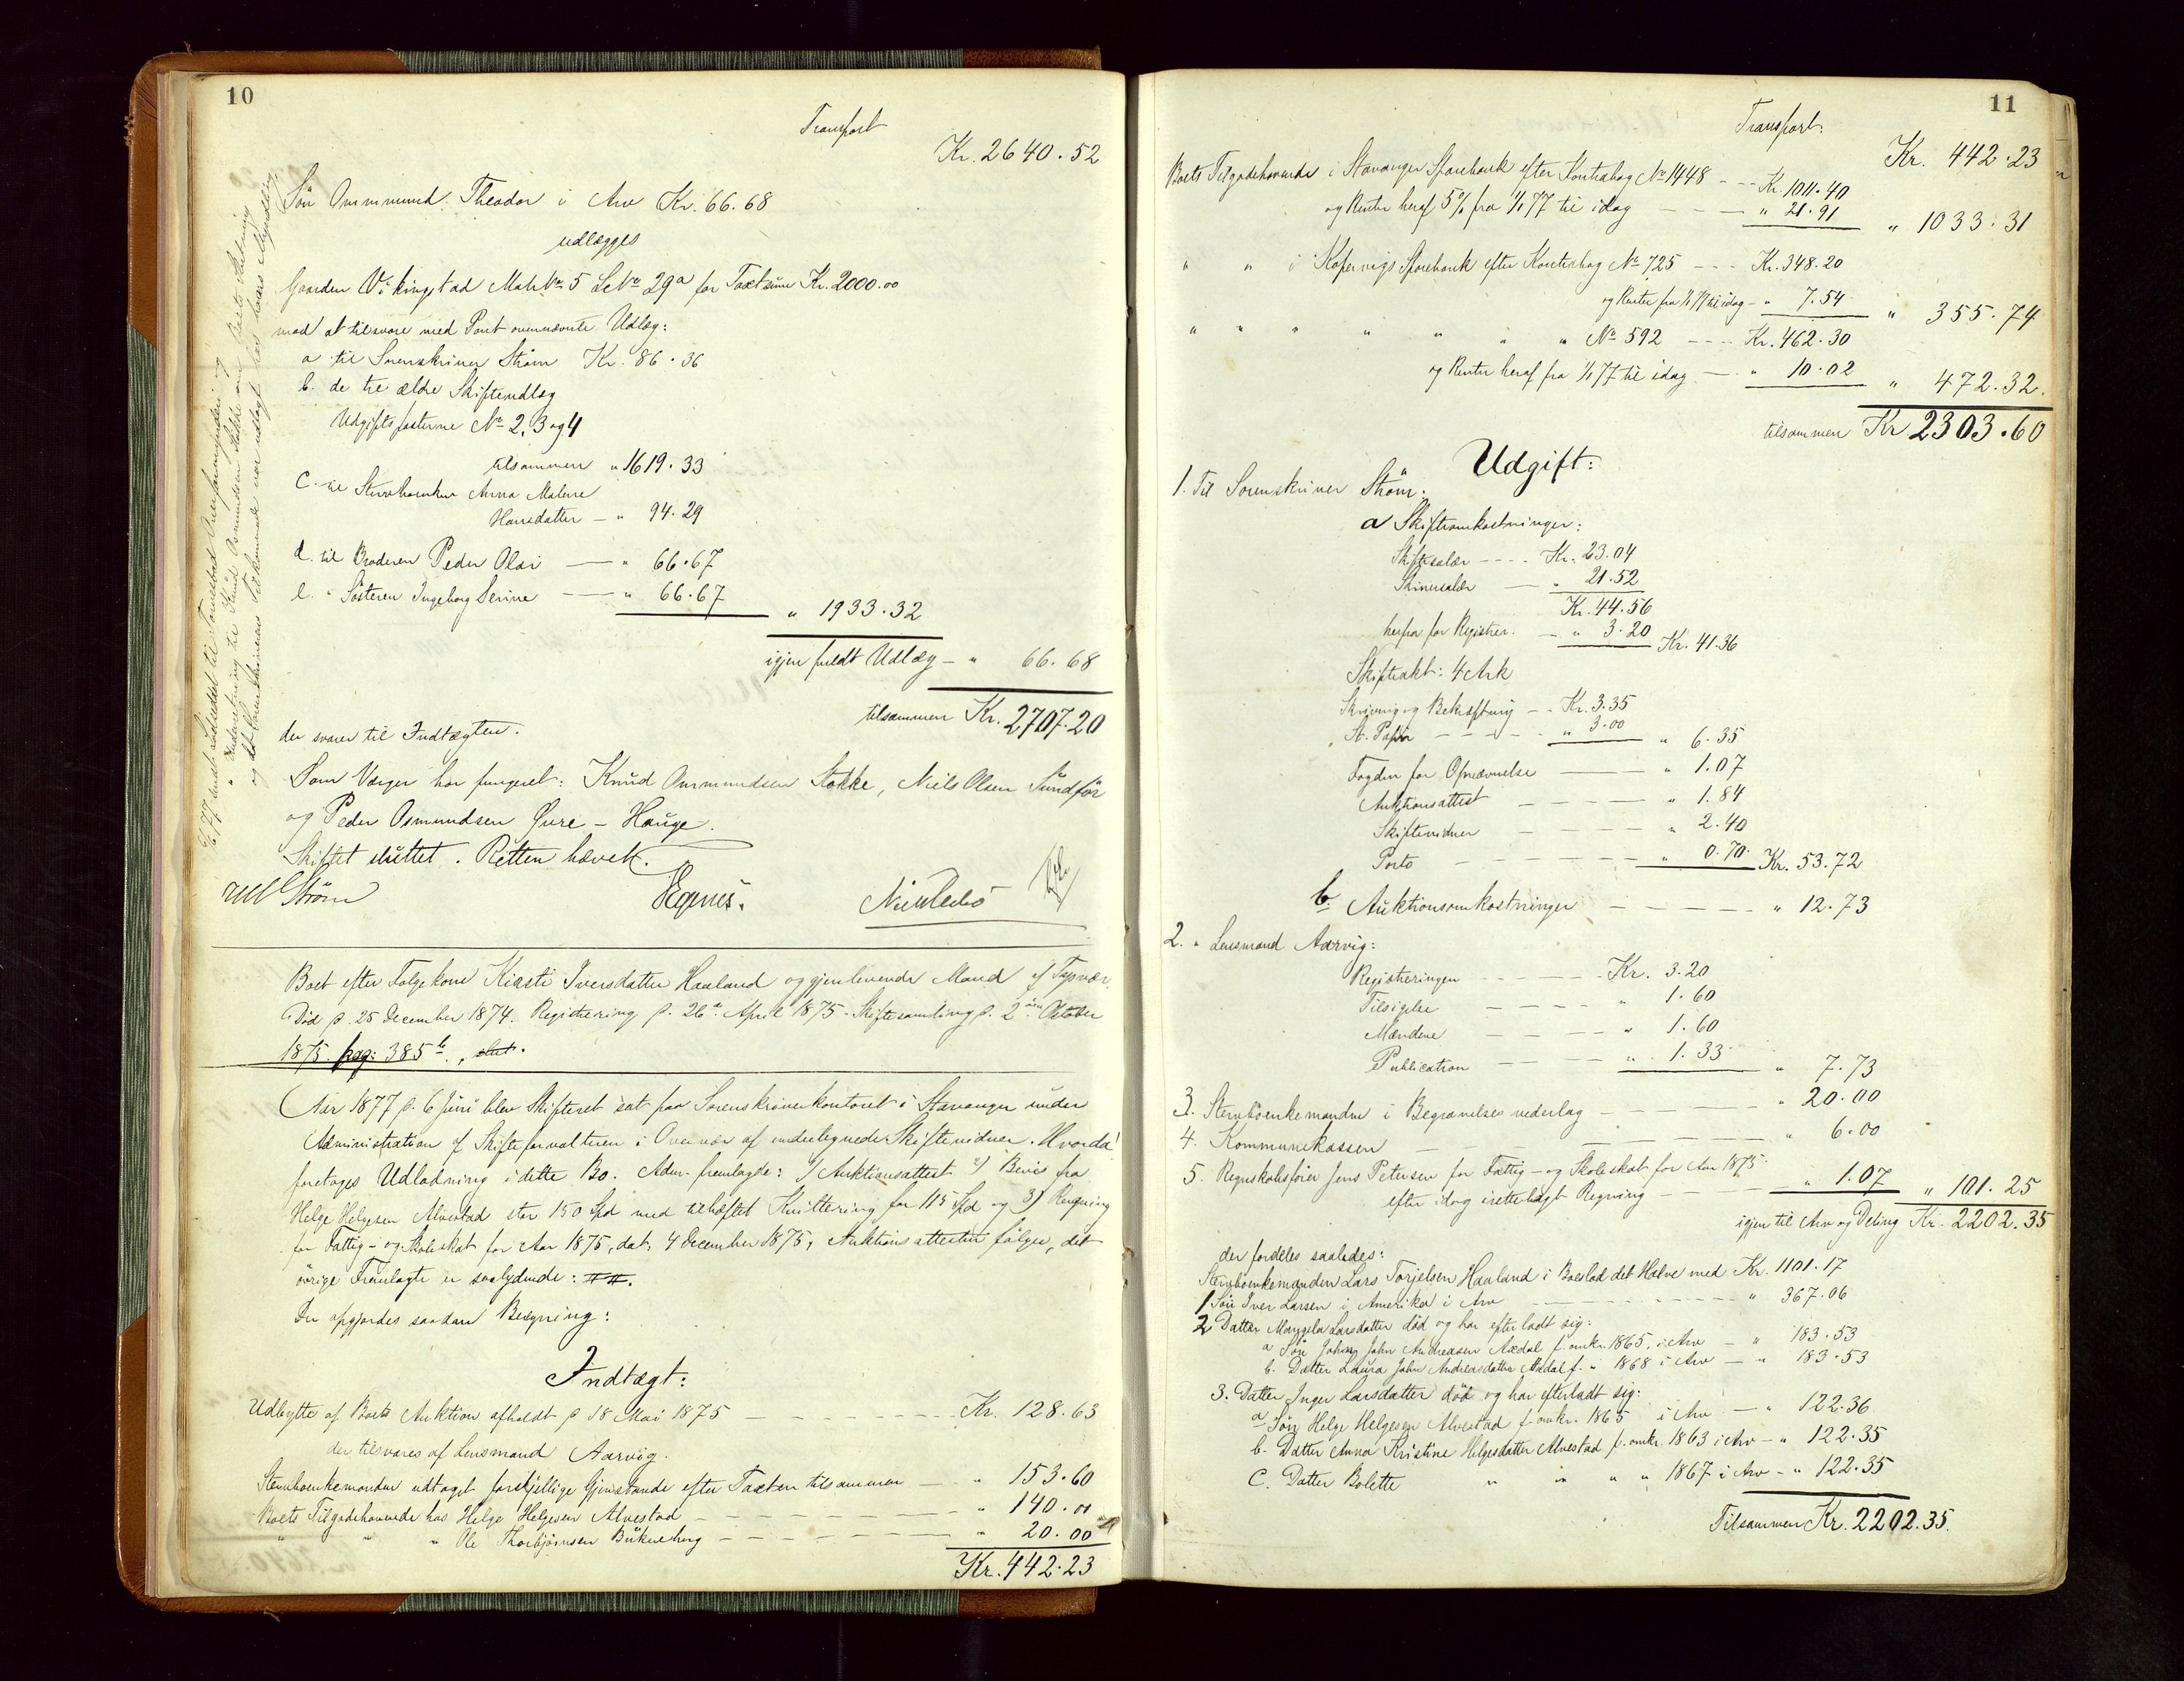 10
Transport
Kr. 2640.52
Søn Ommund Theodor i Arv Kr. 66.68
udlægges
Gaarden Vikingstad Matr No 5 LNo 29a for Taxtsum Kr. 2000.00
mod at tilsvare med Pant ovennævnte Udlæg:
a til Sorenskriver Strøm Kr. 86.36
b. de tre ældre Skifteudlæg
Udgiftsposterne No 2, 3 og 4
tilsammen " 1619.33
c. til Stervboenken Anna Malene
Hansdatter — " 94.29
d. til Broderen Peder Olai — " 66.67
e. " Søsteren Ingeborg Serine — " 66.67
" 1933.32
igjen fuldt Udlæg — " 66.68
tilsammen Kr. 2707.20
der svarer til Indtægten.
Som Værger har fungeret: Knud Ommundsen Stokke, Niels Olsen Sundfør
og Peder Osmundsen Øvre - Hauge.
Skiftet sluttet. Retten hævet.
Strøm
Boet efter Følgekone Kirsti Iversdatter Haaland og gjenlevende Mand af Tysvær.
Død d. 25 December 1874. Registrering d. 26de April 1875 - Skiftesamling d. 2den October
1875 pag: 385b, slut.
Aar 1877 d. 6 Juni blev Skifteret sat paa Sorenskriverkontoret i Stavanger under
Administration af Skifteforvalteren i Overvær af undertegnede Skiftevidner. Hvorda!
foretoges Udlodning i dette Bo. Adm. fremlagde: 1) Auktionsattest 2) Bevis fra
Helge Helgesen Alvestad stor 150 Spd med tilhæftet Kvittering for 115 Spd og 3) Regning
for Fattig- og Skoleskat for Aar 1875, dat. 4 December 1875, Auktionsattesten følger, det
øvrige Fremlagte er saalydende: ##.
Der opgjordes saadan Beregning:
Indtægt:
Udbytte af Boets Auktion afholdt d 18 Mai 1875 — Kr. 128.63
der tilsvares af Lensmand Aarvig.
Stervboenkemanden udtaget forskjellige Gjenstande efter Taxten tilsammen — " 153.60
Boets Tilgodehavende hos Helge Helgesen Alvestad — " 140.00
" " " Ole Thorbjørnsen — " 20.00
Kr. 442.23
11
Transport:
Kr. 442.23
Boets Tilgodehavende i Stavanger Sparebank efter Kontrabog No 1448 --- Kr. 1011.40
og Renter heraf 5% fra 1/1 77 til idag — " 21.91
" 1033.31
" " i Kopervigs Sparebank efter Kontrabog No 725 --- Kr. 348.20
og Renter fra 1/1 77 til idag — " 7.54
" 355.74
" " " " " " " No 592 --- Kr. 462.30
og Renter heraf fra 1/1 77 til idag — " 10.02
" 472.32.
tilsammen Kr 2303.60
Udgift:
1. Til Sorenskriver Strøm.
a Skifteomkostninger:
Skiftesalær ---- Kr. 23.04
Skriversalær — " 21.52
Kr. 44.56
herfra for Registrer. — " 3.20 Kr. 41.36
Skifteakt: 4 Ark
Skrivning og Bekræftning -- Kr. 3.35
St. Papir ---- " 3.00 " 6.35
Fogden for Opnævnelse — " 1.07
Auktionsattest — " 1.84
Skiftevidner — " 2.40
Porto — " 0.70 Kr. 53.72
b. Auktionsomkostninger — " 12.73
2. " Lensmand Aarvig:
Registreringen ---- Kr. 3.20
Tilsigelse — " 1.60
Mændene — " 1.60
Publication — " 1.33 " 7.73
3. Stervboenkemanden i Begravelses vederlag — " 20.00
4. Kommunekassen — " 6.00
5. Regnskabsfører Jens Petersen for Fattig- og Skoleskat for Aar 1875
efter idag irettelagt Regning — " 1.07 " 101.25
igjen til Arv og Deling Kr. 2202.35
der fordeles saaledes:
Stervboenkemanden Lars Torjelsen Haaland i Boeslod det Halve med Kr. 1101.17
1 Søn Iver Larsen i Amerika i Arv — " 367.06
2 Datter Larsdatter død og har efterladt sig:
a Søn John Andreasen f. omkr. 1865, i Arv — " 183.53
b. Datter Laura John Andreasdatter f. " 1868 i Arv — " 183.53
3. Datter Inger Larsdatter død og har efterladt sig:
a Søn Helge Helgesen Alvestad f. omkr. 1865 i Arv — " 122.36
b. Datter Anna Kristine Helgesdatter Alvestad f. omkr. 1863 i Arv — " 122.35
c. Datter Bolette " " " " 1867 i Arv — " 122.35
Tilsammen Kr. 2202.35.